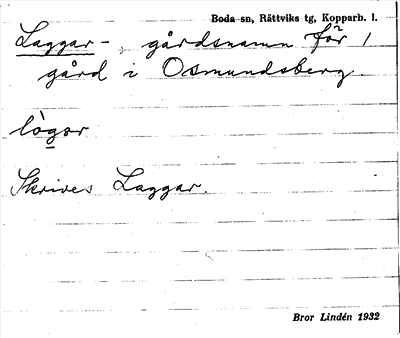 Boda sn, Rättviks tg, Kopparb. l.
Laggar-, gårdsnamn för 1
gård i Osmundsberg.
lògȯr
Skrives Laggar.
Bror Lindén 1932